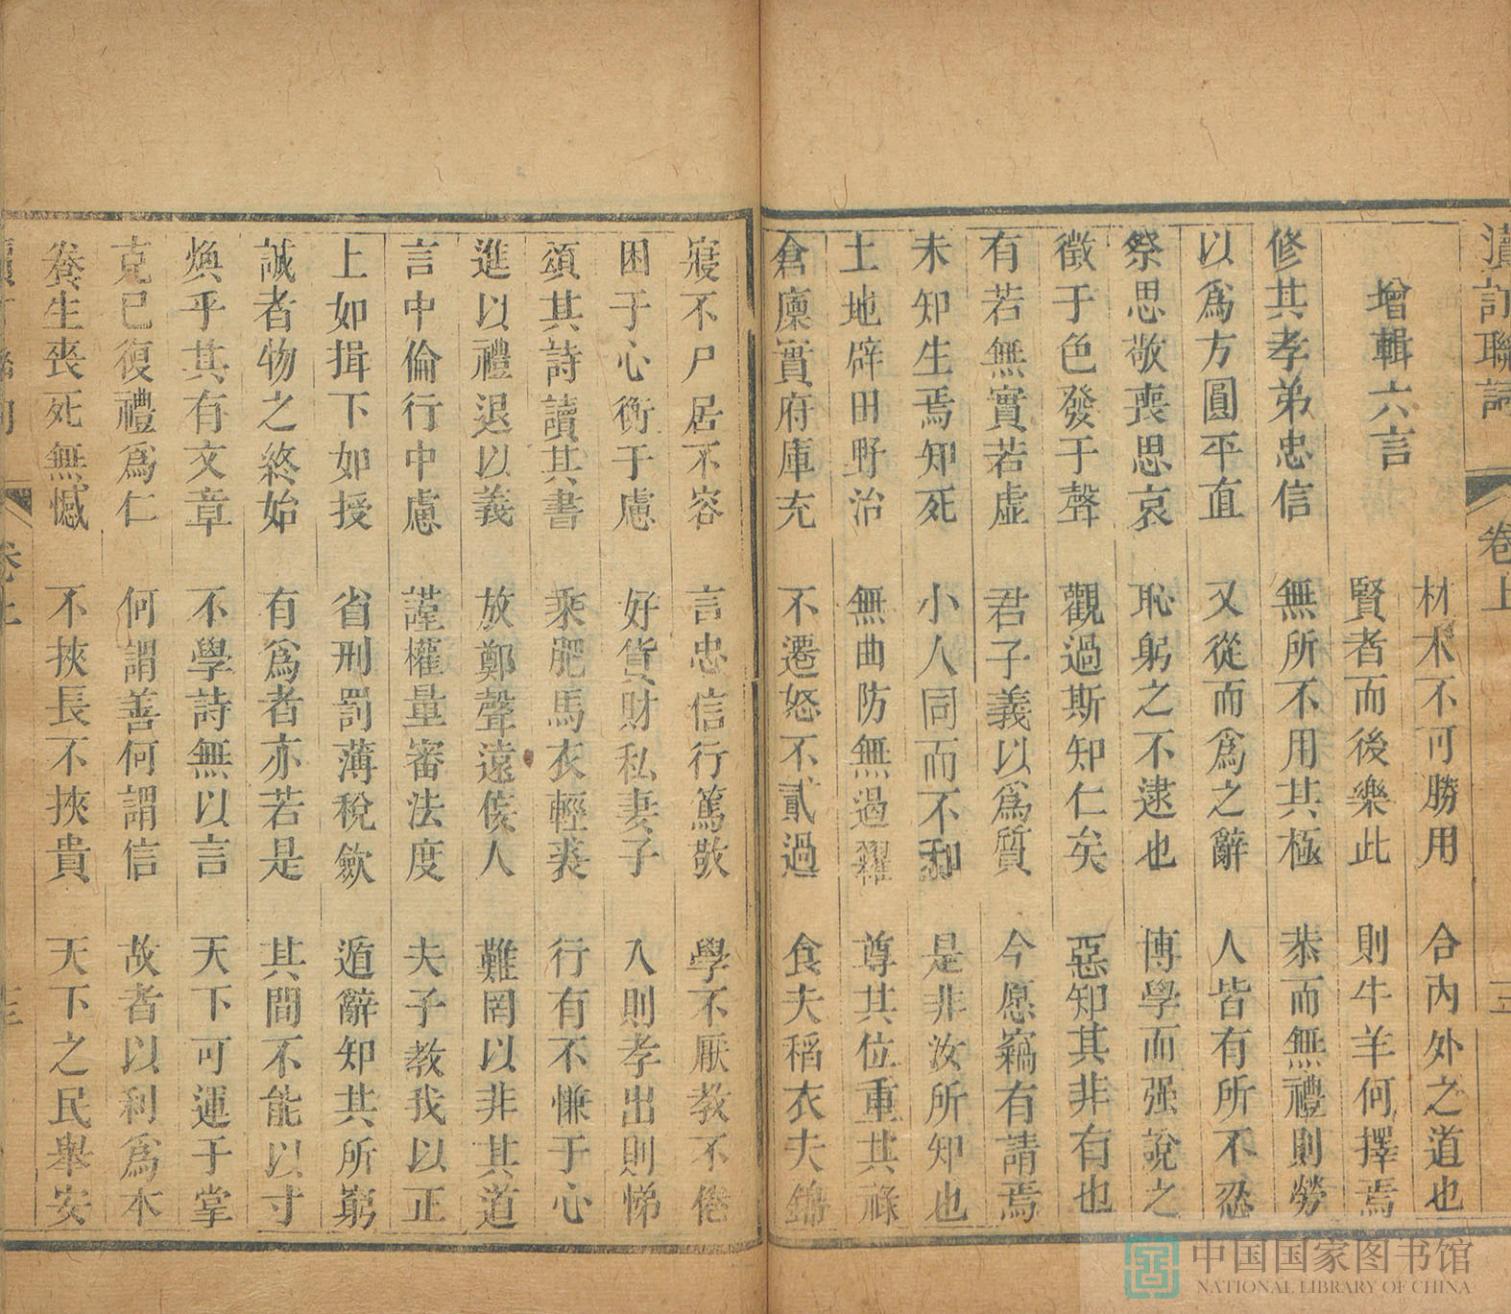 卷上
增輯六言
材木不可勝用 合內外之道也
賢者而後樂此 則牛羊何擇焉
修其孝弟忠信 無所不用其極 恭而無禮則勞
以爲方圓平直 又從而爲之辭 人皆有所不忍
祭思敬喪思哀 恥躬之不逮也 博學而强說之
徵于色發于聲 觀過斯知仁矣 惡知其非有也
有若無實若虛 君子義以爲質 今愿竊有請焉
未知生焉知死 小人同而不和 是非汝所知也
土地辟田野治 無曲防無遏糴 尊其位重其祿
倉廩實府庫充 不遷怒不貳過 食夫稻衣夫錦
寢不尸居不容 言忠信行篤敬 學不厭教不倦
困于心衡于慮 好貨財私妻子 入則孝出則悌
頌其詩讀其書 乘肥馬衣輕裘 行有不慊于心
進以禮退以義 放鄭聲遠佞人 難罔以非其道
言中倫行中慮 謹權量審法度 夫子教我以正
上如揖下如授 省刑罰薄稅歛 遁辭知其所窮
誠者物之終始 有爲者亦若是 其間不能以寸
煥乎其有文章 不學詩無以言 天下可運于掌
克己復禮爲仁 何謂善何謂信 故者以利爲本
養生喪死無憾 不挾長不挾貴 天下之民舉安
中国国家图书馆
NATIONAL LIBRARY OF CHINA